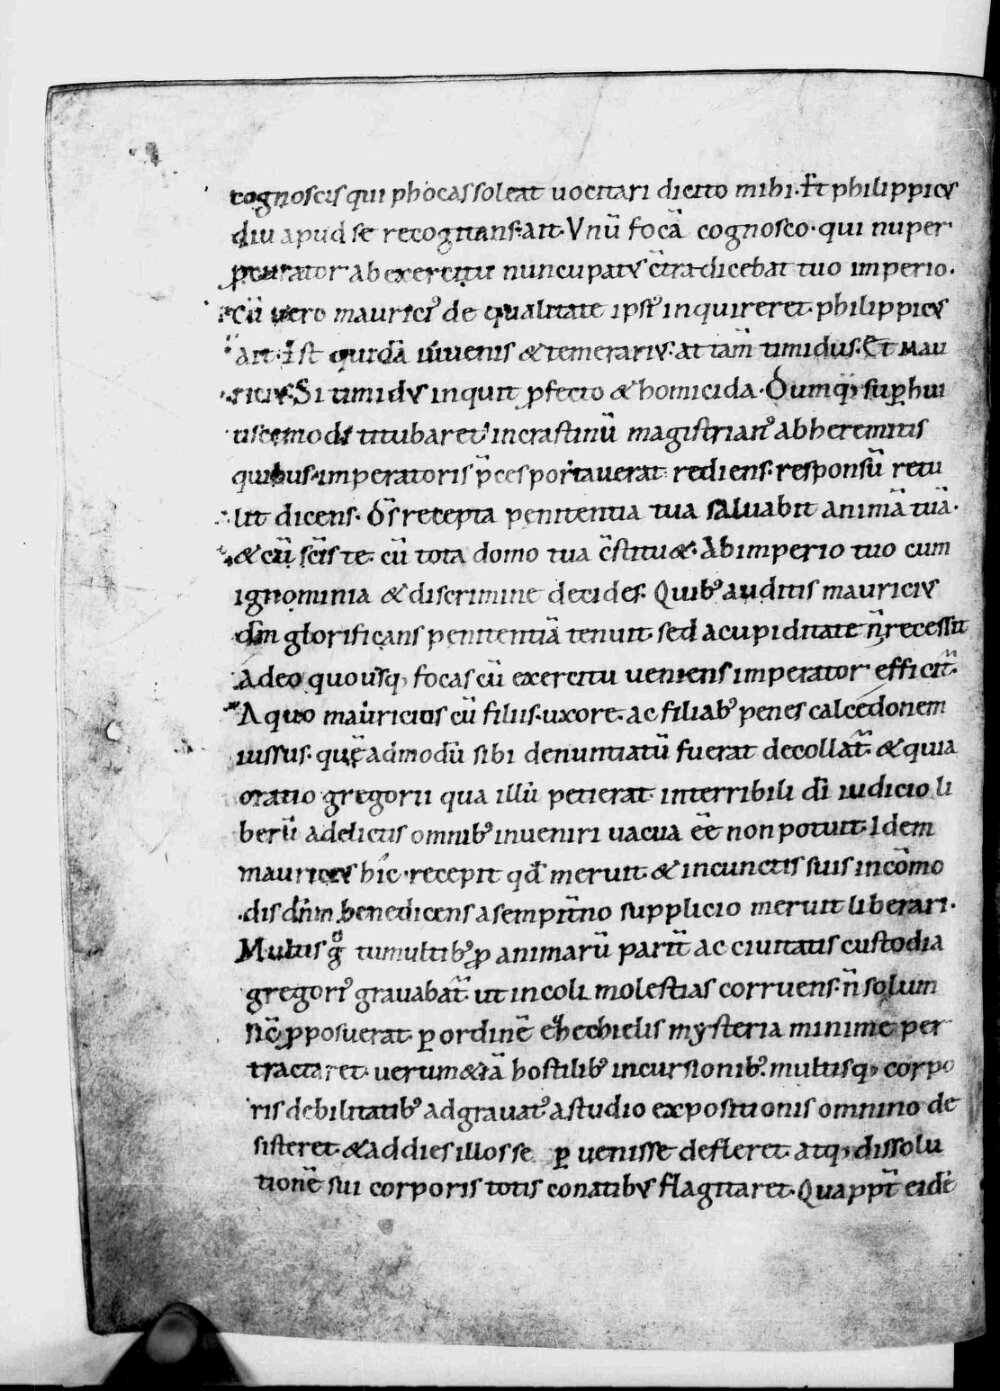 cognoscis qui phocas soleat uocitari dicito mihi. Et philippicus
diu apud se recogitans. ait. Vnū focā cognosco. qui nuper
procurator ab exercitu nuncupatus c̄tradicebat tuo imperio.
Cū uero mauricius de qualitate ipsius inquireret. philippicus
ait. Est quidā iuuenis & temerarius. at tam̄ timidus. Et Mau
ricius. Si timidus inquit ꝓfecto & homicida. Dumq; sup̱ hui
uscemodi titubaret. in crastinū magistrianus ab heremitis
quibus imperatoris p̄ces portauerat rediens. responsū retu
lit dicens. D̄s recepta penitentia tua saluabit animā tuā.
& cū sc̄is te. cū tota domo tua c̄stituet. Ab imperio tuo cum
ignominia & discrimine decides. Quib; auditis mauricius
dn̄m glorificans penitentiā tenuit. sed a cupiditate n̄ recessit
Adeo quousq; focas cū exercitu ueniens imperator efficit̄.
A quo mauricius cū filiis. uxore. ac filiab; penes calcedonem
iussus. quēadmodū sibi denuntiatū fuerat decollat̄. & quia
oratio gregorii qua illū petierat in terribili dī iudicio li
berū a delictis omnib; inueniri uacua ēē non potuit. Idem
mauricius hic recepit qd̄ meruit. & in cunctis suis incōmo
dis dn̄m benedicens a sempit̄no supplicio meruit liberari.
Multis gͦ tumultib; ꝓ animarū parit̄ ac ciuitatis custodia
gregorius grauabat̄. ut incoli molestias corruens. n̄ solum
ꝓposuerat ꝑ ordinē ezhechielis mysteria minime per
tractaret. uerum & iā hostilib; incursionib;. multisq; corpo
ris debilitatib; adgrauatus a studio expositionis omnino de
sisteret. & ad dies illos se ꝑuenisse defleret. atq; dissolu
tionē sui corporis totis conatibus flagitaret. Quappt̄ eidē